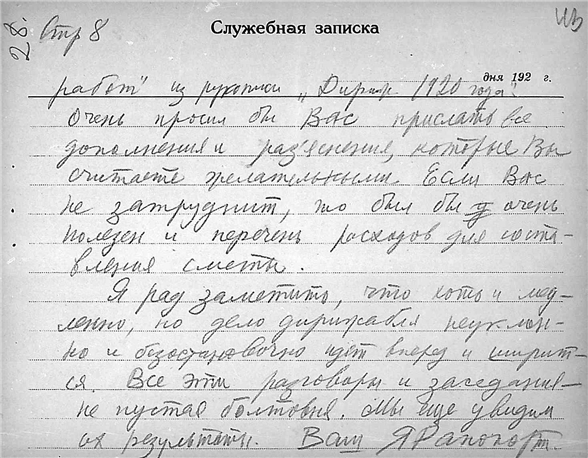 28. Стр 8
Служебная записка
дня 192 г.
работ" из рукописи „Дириж 1920 года".
Очень просил бы Вас прислать все
дополнения и раз'яснения, которые Вы
считаете желательными. Если Вас
не затруднит, то был бы очень
полезен и перечень расходов для соста-
вления сметы.
Я рад заметить, что хоть и мед-
ленно, но дело дирижабля неуклон-
но и безостановочно идёт вперед и ширит-
ся. Все эти разговоры и заседания—
не пустая болтовня. Мы еще увидим
их результаты. Ваш ЯРапопорт.